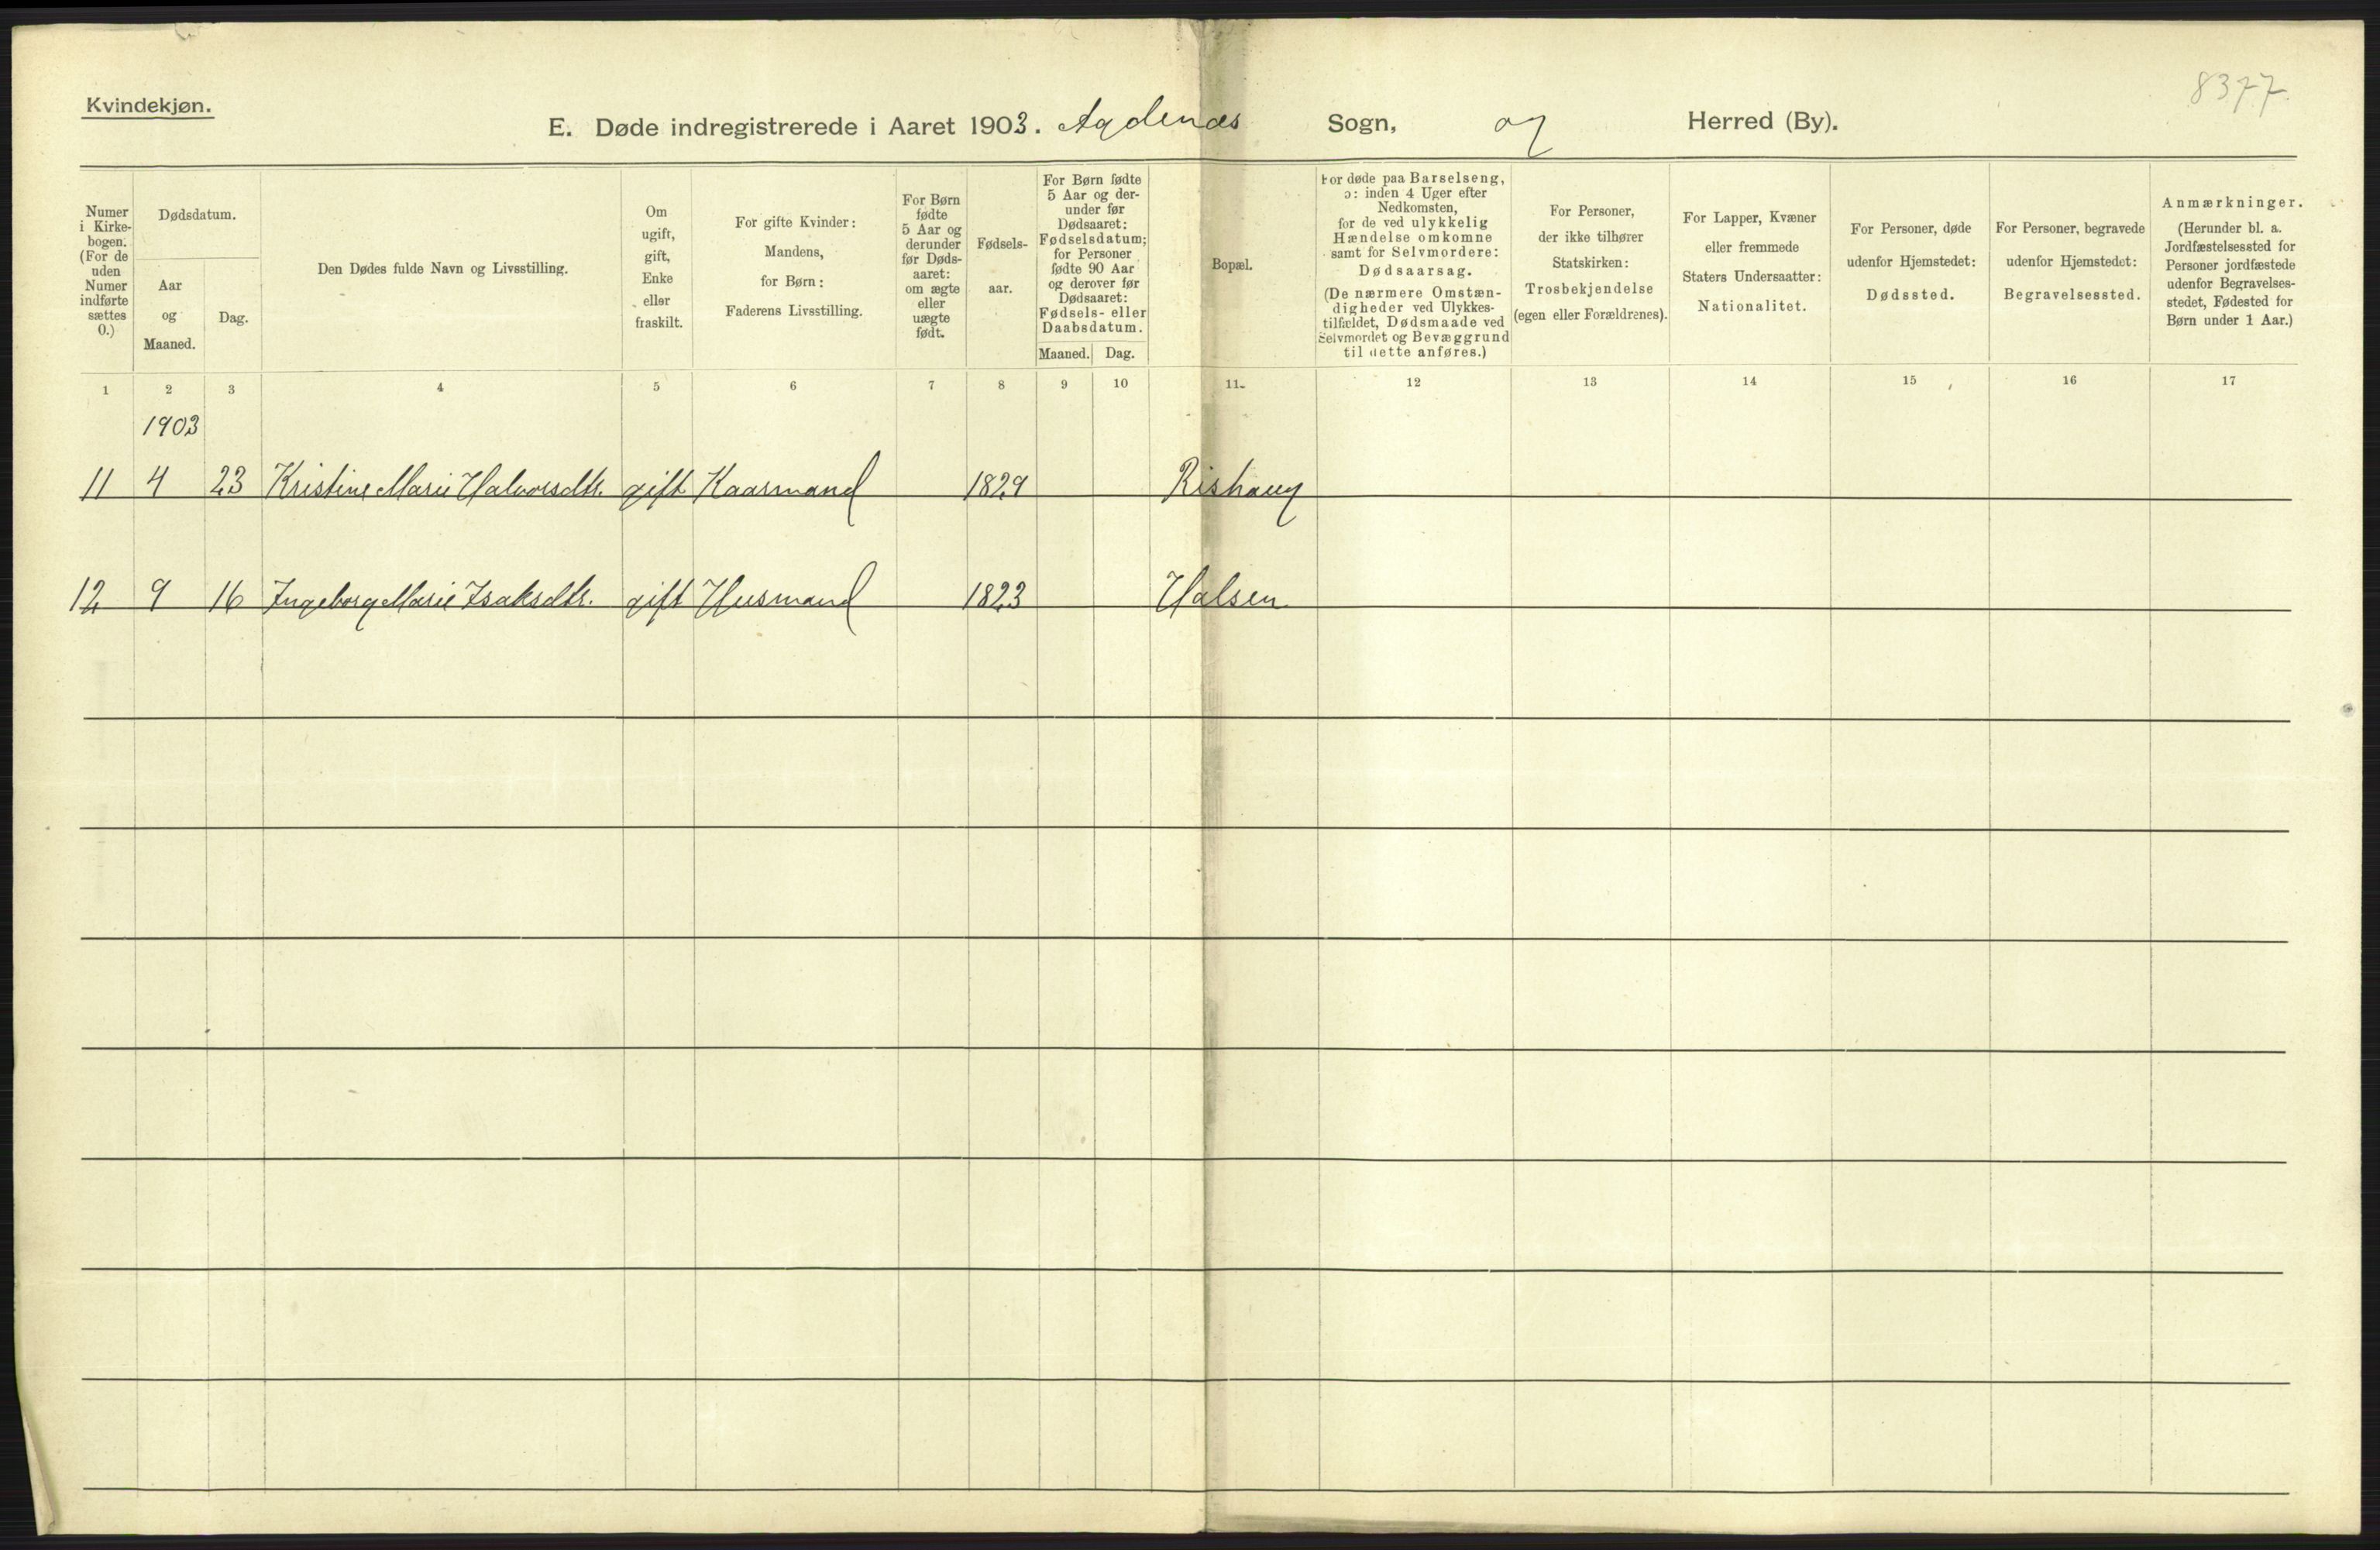 8377.
Kvindekjøn.
E. Døde indregistrerede i Aaret 1903. Agdenæs Sogn, og Herred (By).
Numer i Kirkebogen. (For de uden Numer indførte sættes 0.)
Dødsdatum.
Aar og Maaned.
Dag.
Den Dødes fulde Navn og Livsstilling.
Om ugift, gift, Enke eller fraskilt.
For gifte Kvinder: Mandens, for Børn: Faderens Livsstilling.
For Børn fødte 5 Aar og derunder før Dødsaaret: om ægte eller uægte født.
Fødselsaar.
For Børn fødte 5 Aar og derunder før Dødsaaret: Fødselsdatum; for Personer fødte 90 Aar og derover før Dødsaaret: Fødsels- eller Daabsdatum.
Maaned. Dag.
Bopæl.
For døde paa Barselseng, ɔ: inden 4 Uger efter Nedkomsten, for de ved ulykkelig Hændelse omkomne samt for Selvmordere: Dødsaarsag. (De nærmere Omstændigheder ved Ulykkestilfældet, Dødsmaade ved Selvmordet og Bevæggrund til dette anføres.)
For Personer, der ikke tilhører Statskirken: Trosbekjendelse (egen eller Forældrenes).
For Lapper, Kvæner eller fremmede Staters Undersaatter: Nationalitet.
For Personer, døde udenfor Hjemstedet: Dødssted.
For Personer, begravede udenfor Hjemstedet: Begravelsessted.
Anmærkninger. (Herunder bl. a. Jordfæstelsessted for Personer jordfæstede udenfor Begravelsesstedet, Fødested for Børn under 1 Aar.)
1 2 3 4 5 6 7 8 9 10 11 12 13 14 15 16 17
1903
11 4 23 Kristine Marie Halvorsdtr. gift Kaarmand 1829 Rishaug
12 9 16 Ingeborg Marie Isaksdtr. gift Husmand 1823 Halsen